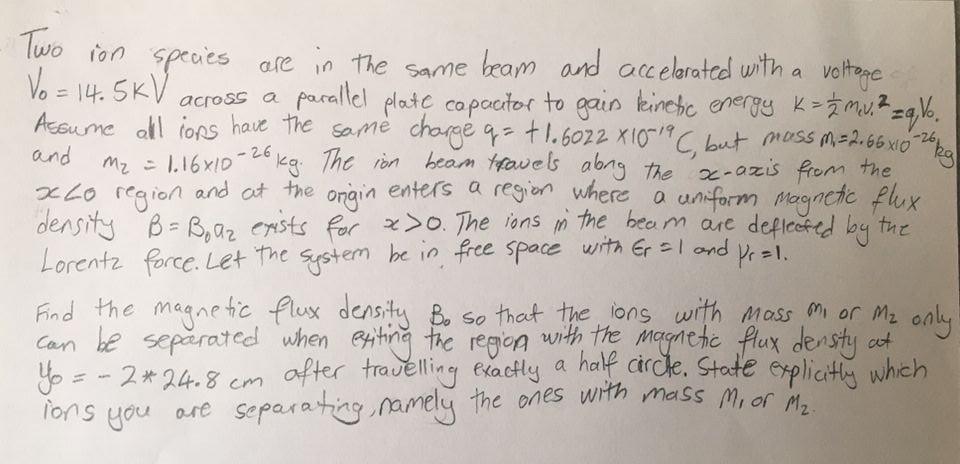 Two ion species are in the same beam and accelerated with a voltage
V₀ = 14.5KV across a parallel plate capacitor to gain kinetic energy K = ½mᵢvᵢ² = qV₀.
Assume all ions have the same charge q = +1.6022 x10⁻¹⁹C, but mass m₁=2.66x10⁻²⁶kg
and m₂ = 1.16x10⁻²⁶kg. The ion beam travels along the x-axis from the
x<0 region and at the origin enters a region where a uniform magnetic flux
density B = B₀a₂ exists for x>0. The ions in the beam are deflected by the
Lorentz force. Let the system be in free space with Er=1 and μr=1.
Find the magnetic flux density B₀ so that the ions with mass m₁ or M₂ only
can be separated when exiting the region with the magnetic flux density at
y₀ = - 2*24.8 cm after travelling exactly a half circle. State explicitly which
ions you are separating, namely the ones with mass M₁ or M₂.